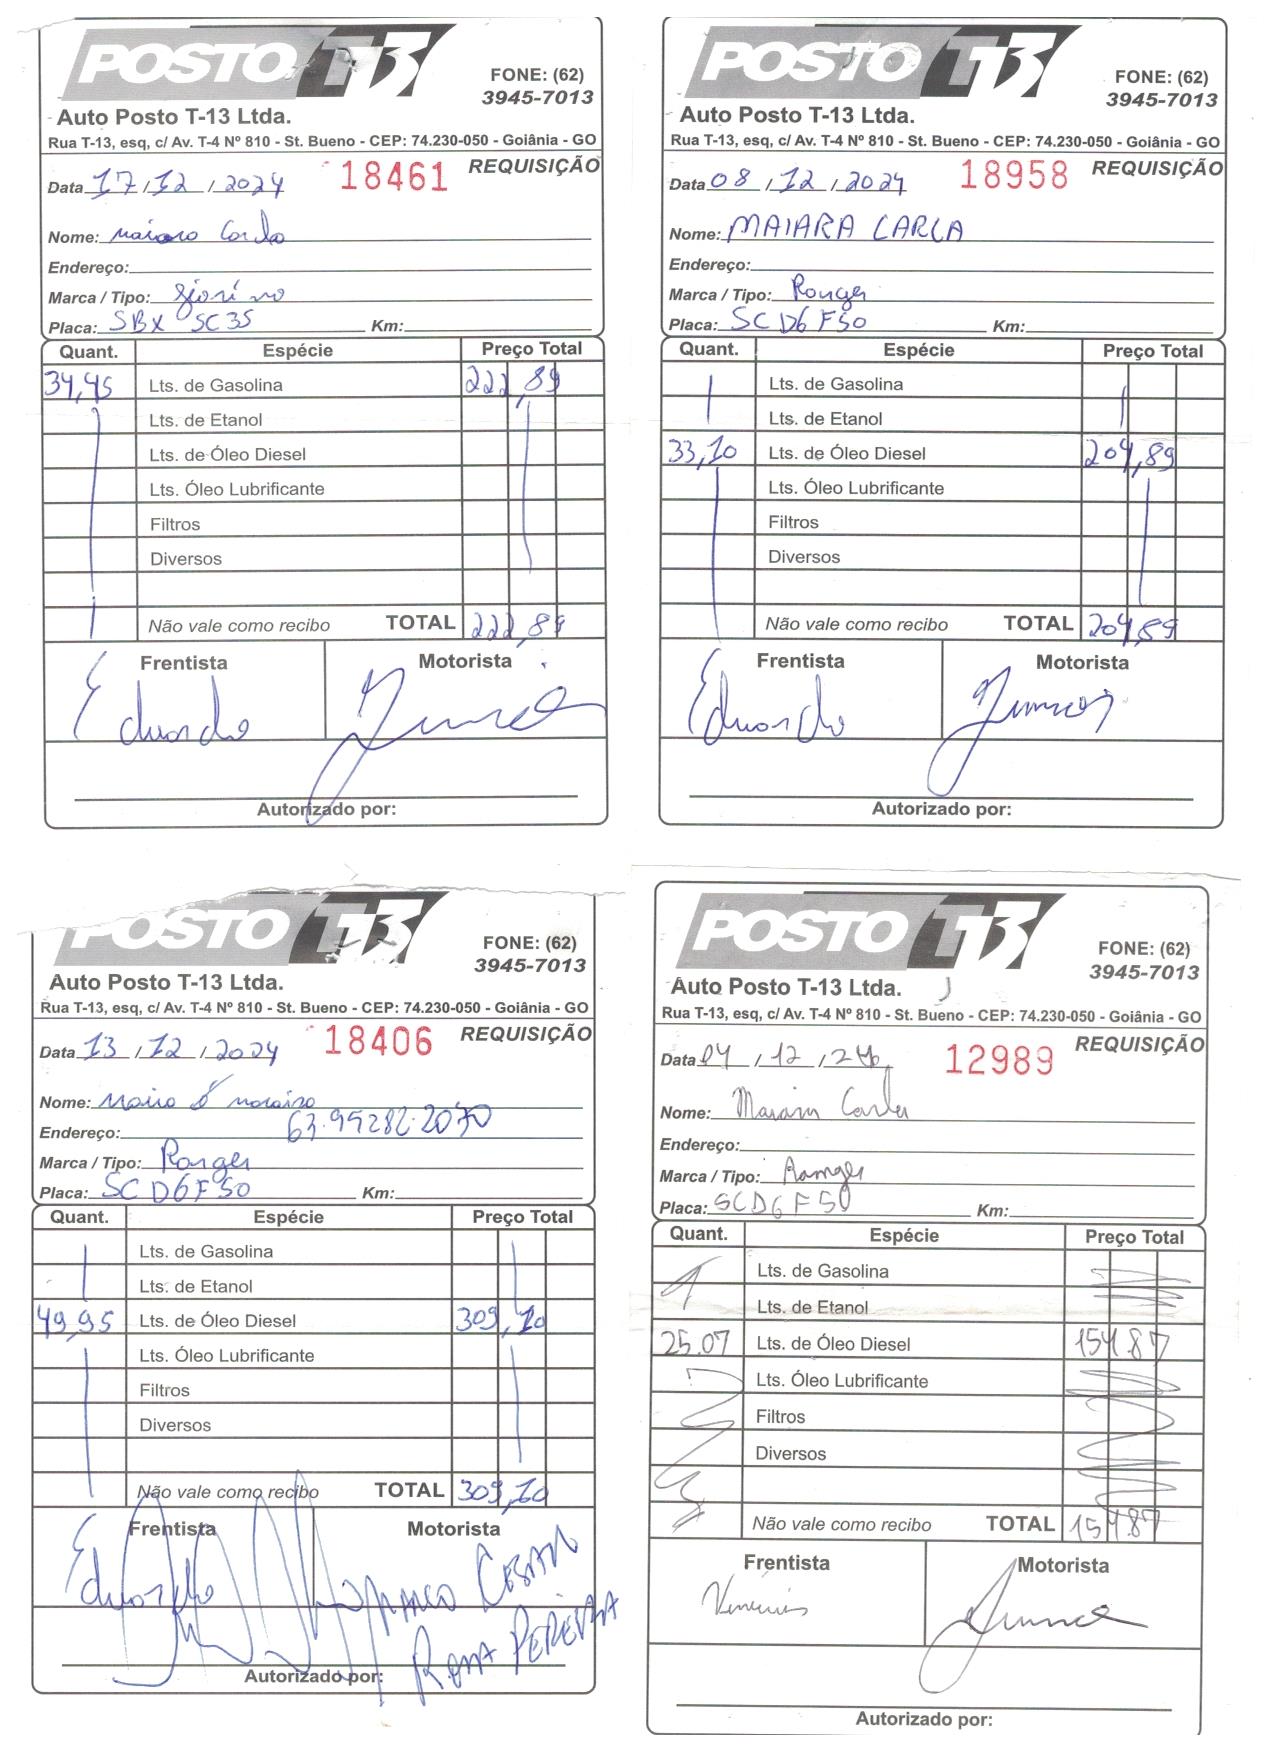 POSTO T-13
FONE: (62)
3945-7013
Auto Posto T-13 Ltda.
Rua T-13, esq, c/ Av. T-4 Nº 810 - St. Bueno - CEP: 74.230-050 - Goiânia - GO
Data 17 / 12 / 2024 18461 REQUISIÇÃO
Nome:
Endereço:
Marca / Tipo:
Placa: SBX 5C35 Km:
Quant. Espécie Preço Total
34,45 Lts. de Gasolina 222,89
Lts. de Etanol
Lts. de Óleo Diesel
Lts. Óleo Lubrificante
Filtros
Diversos
Não vale como recibo TOTAL 222,89
Frentista Motorista
Eduardo Junior
Autorizado por:
POSTO T-13
FONE: (62)
3945-7013
Auto Posto T-13 Ltda.
Rua T-13, esq, c/ Av. T-4 Nº 810 - St. Bueno - CEP: 74.230-050 - Goiânia - GO
Data 08 / 12 / 2024 18958 REQUISIÇÃO
Nome: MAIARA CARLA
Endereço:
Marca / Tipo: Ranger
Placa: SCD6F50 Km:
Quant. Espécie Preço Total
Lts. de Gasolina
Lts. de Etanol
33,10 Lts. de Óleo Diesel 204,89
Lts. Óleo Lubrificante
Filtros
Diversos
Não vale como recibo TOTAL 204,89
Frentista Motorista
Eduardo Junior
Autorizado por:
POSTO T-13
FONE: (62)
3945-7013
Auto Posto T-13 Ltda.
Rua T-13, esq, c/ Av. T-4 Nº 810 - St. Bueno - CEP: 74.230-050 - Goiânia - GO
Data 13 / 12 / 2024 18406 REQUISIÇÃO
Nome:
Endereço: 63.99282.2070
Marca / Tipo: Ranger
Placa: SCD6F50 Km:
Quant. Espécie Preço Total
Lts. de Gasolina
Lts. de Etanol
49,95 Lts. de Óleo Diesel 309,10
Lts. Óleo Lubrificante
Filtros
Diversos
Não vale como recibo TOTAL 309,10
Frentista Motorista
Eduardo MARCO CESAR
PEREIRA
Autorizado por:
POSTO T-13
FONE: (62)
3945-7013
Auto Posto T-13 Ltda.
Rua T-13, esq, c/ Av. T-4 Nº 810 - St. Bueno - CEP: 74.230-050 - Goiânia - GO
Data 04 / 12 / 24 12989 REQUISIÇÃO
Nome: Carla
Endereço:
Marca / Tipo: Ranger
Placa: SCD6F50 Km:
Quant. Espécie Preço Total
Lts. de Gasolina
Lts. de Etanol
25.07 Lts. de Óleo Diesel 154.87
Lts. Óleo Lubrificante
Filtros
Diversos
Não vale como recibo TOTAL 154.87
Frentista Motorista
Autorizado por: